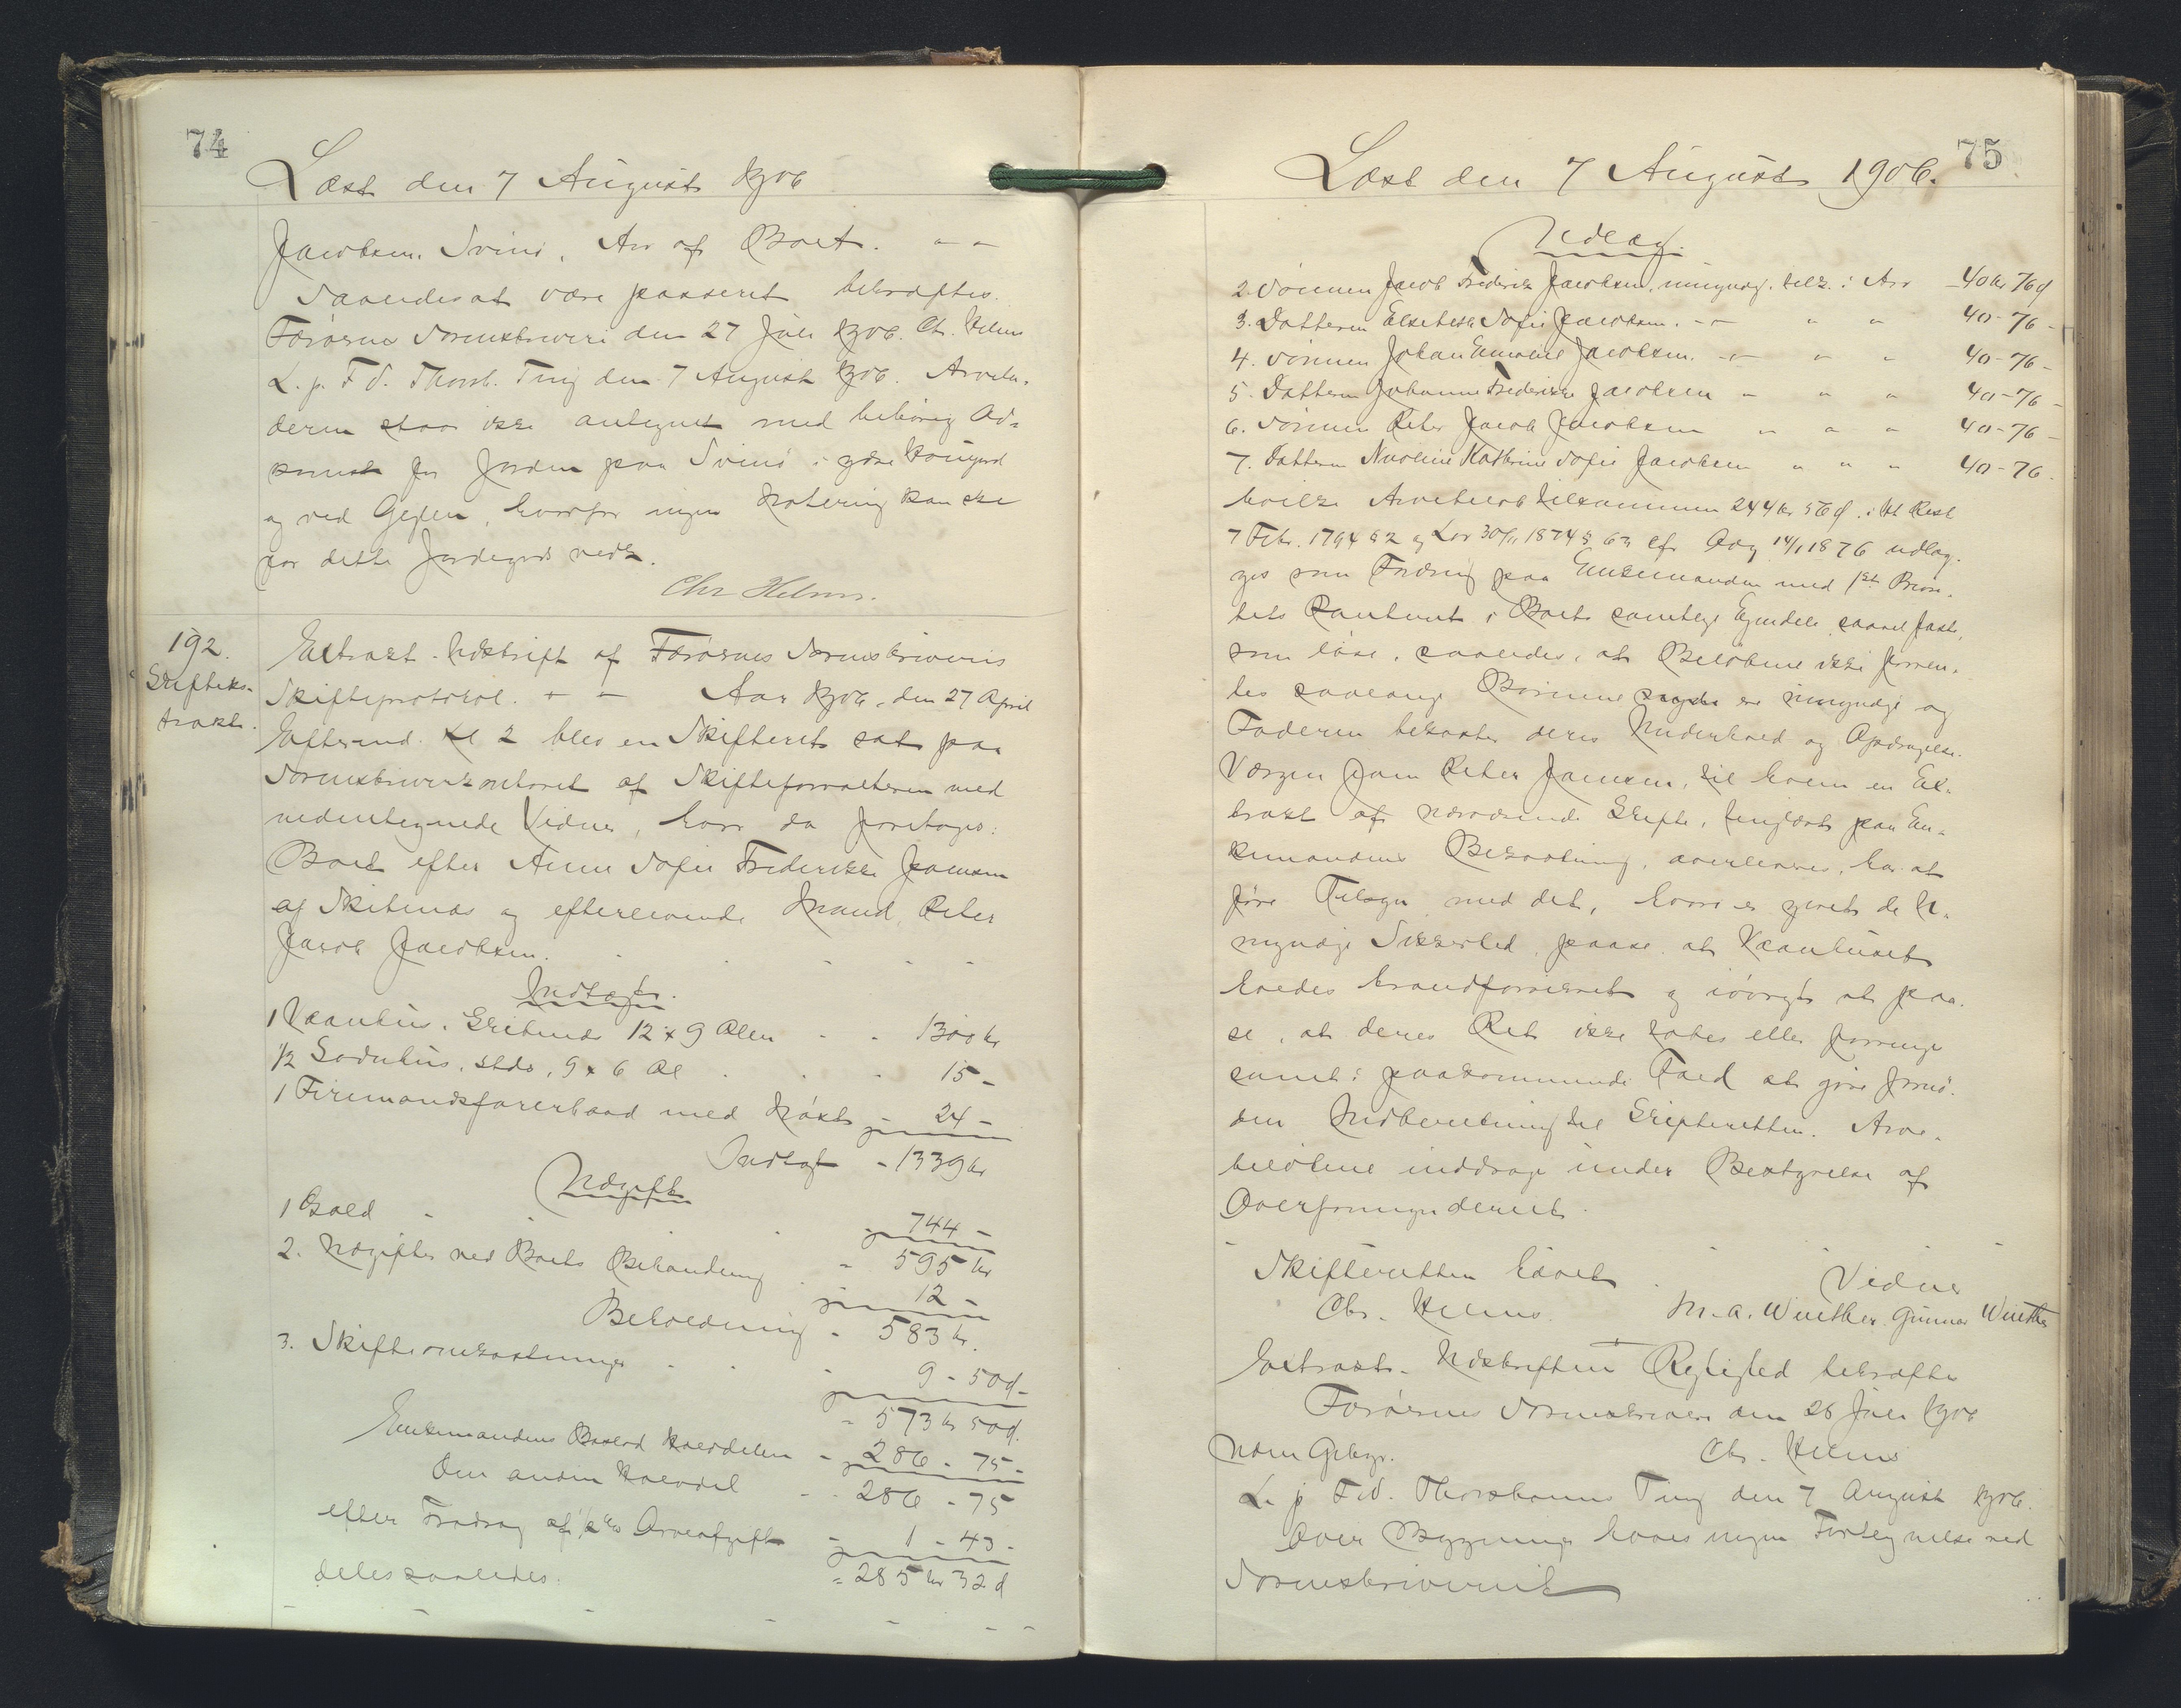 74
Læst den 7 August 1906
Jacobsen, Svinö, Arv af Boet. - -
Saaledes at være passeret bekræftes.
Færøernes Sorenskriveri den 27 Juli 1906. Chr. Helms
L. p. F. V. Thorsh. Ting den 7 August 1906. Arvela-
deren staar ikke antegnet med behörig Ad-
komst for Jorden paa Svinö i ydre Kongsgd
og ved Gejlen, hvorfor ingen Notering kan ske
for dette Jordegods vedk.
Chr Helms.
192.
Skifteks-
trakt.
Extrakt-Udskrift af Færøernes Sorenskriveris
Skifteprotokol. - - Aar 1906, den 27 April
Eftermd. Kl 2 blev en Skifteret sat paa
Sorenskriverkontoret af Skifteforvalteren med
undertegnede Vidner, hvor da foretoges:
Boet efter Anne Sofie Frederikke Joensen
af Skitenæs og efterlevende Mand, Peter
Jacob Jacobsen. - - - - -
Indtægt.
1 Vaanhus, Skitenæs 12 x 9 Alen - - 1300 kr
1/2 Sodnhus, stds, 9 x 6 Al - - 15 -
1 Firemandsfarerbaad med Nöst - 24 -
Indtægt - 1339 kr
Udgift
1 Gæld - - - 744 -
- 595 kr
2. Udgifter ved Boets Behandling - 12 -
Beholdning - 583 kr.
3. Skifteomkostninger - - 9 - 50 ø -
- 573 kr 50 ø.
Enkemandens Boslod Halvdelen - 286 - 75 -
Den anden Halvdel - - 286 - 75
efter Fradrag af 1/2 % Arveafgift - 1 - 43 -
deles saaledes. = 285 kr 32 ø
75
Læst den 7 August 1906.
Udlæg.
2. Sönnen Jacob Frederik Jacobsen, umyndig, tilk. i Arv - 40 kr 76 ø
3. Datteren Elsebeth Sofie Jacobsen. - - " " 40 - 76 -
4. Sönnen Johan Emanuel Jacobsen. - - " " 40 - 76 -
5. Datteren Johanne Frederikke Jacobsen - " " 40 - 76 -
6. Sönnen Peter Jacob Jacobsen " " " 40 - 76 -
7. Datteren Nicoline Kathrine Sofie Jacobsen " " " 40 - 76.
hvilke Arvebeløb tilsammen 244 kr 56 ø. i Hht Resk
7 Febr. 1794 § 2 og Lov 30/11 1874 § 63 cfr Anog 14/1 1876 udlæg-
ges som Fordring paa Enkemanden med 1ste Priori-
tets Panteret i Boets samtlige Ejendele, saavel faste,
som löse, saaledes, at Belöbene ikke forren-
tes saalænge Börnene er umyndige og
Faderen bekoster deres Underhold og Opdragelse.
Værgen Joen Peter Joensen, til hvem en Ex-
trakt af nærværende Skifte, tinglæst paa En-
kemandens Bekostning, overleveres, har at
före Tilsyn med det, hvori er givet de U-
myndige Sikkerhed, paase, at Vaanhuset
holdes brandforsikret og iövrigt at paa-
se, at deres Ret ikke tabes eller forringes
samt i paakommende Fald at gjöre fornö-
den Indberetning til Skifteretten. Arve-
belöbene inddrages under Bestyrelse af
Overformynderiet.
Skifteretten hævet. Vidner
Chr. Helms. M. A. Winther. Gunnar Winther
Extrakt-Udskriftens Rigtighed bekræftes
Færøernes Sorenskriveri den 26 Juli 1906
Uden Gebyr. Chr. Helms
L. p. F. V. Thorshavns Ting den 7 August 1906.
Over Bygninger haves ingen Fortegnelse ved
Sorenskriveriet